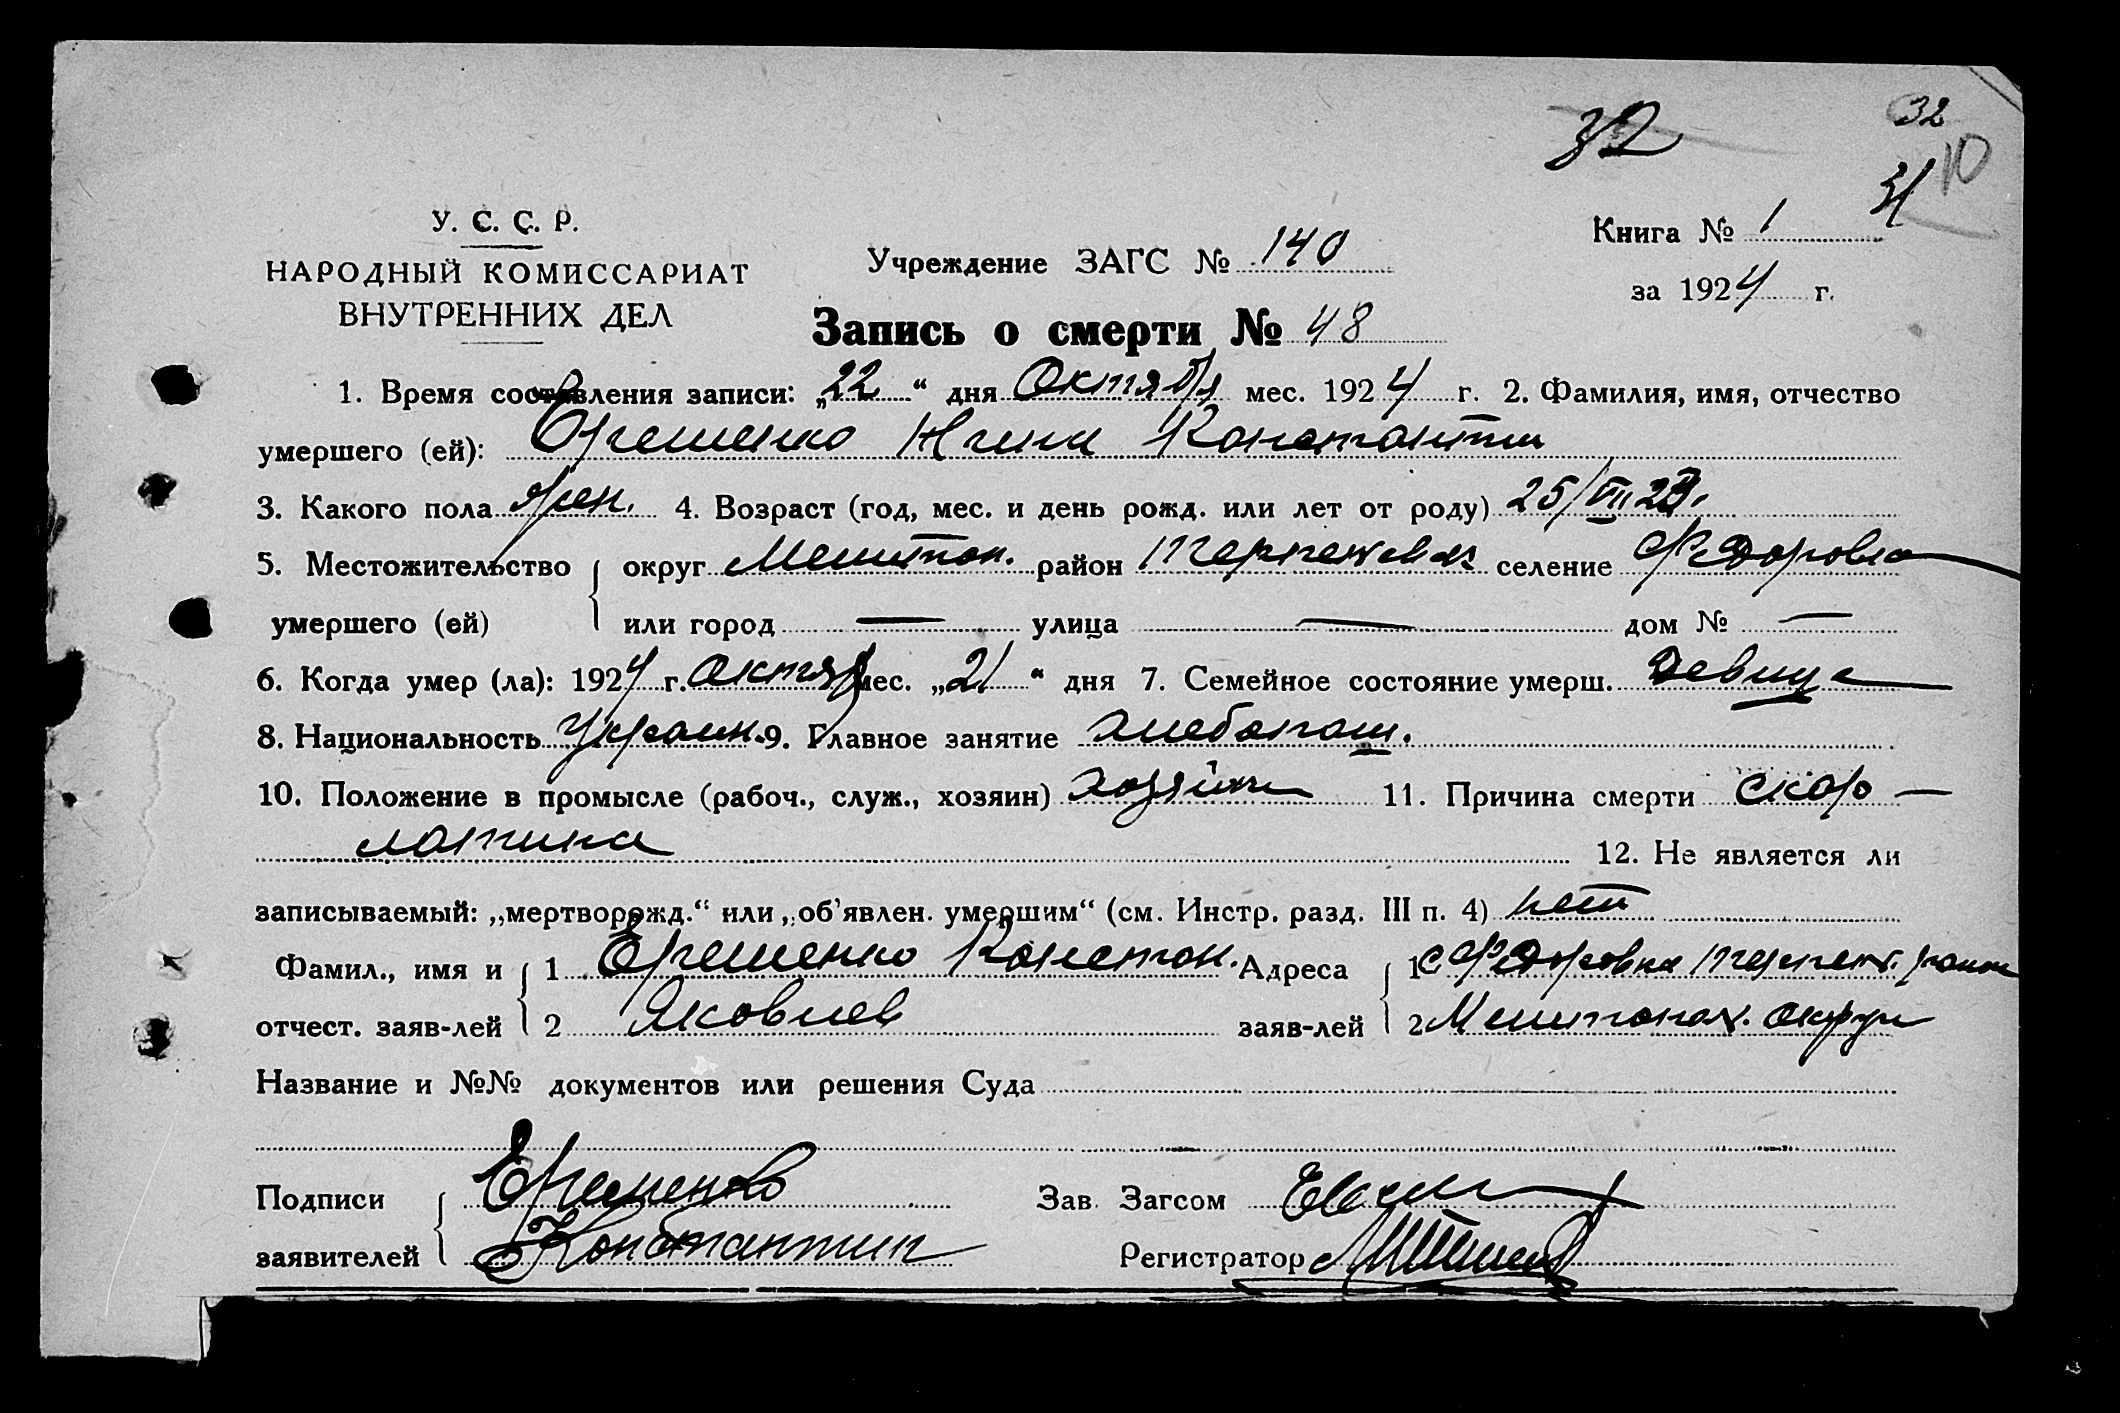 32
32
10
31
У. С. С. Р.
НАРОДНЫЙ КОМИССАРИАТ
ВНУТРЕННИХ ДЕЛ
Учреждение ЗАГС № 140
Книга № 1
за 1924 г.
Запись о смерти № 48
1. Время составления записи: „22“ дня Октября мес. 1924 г. 2. Фамилия, имя, отчество
умершего (ей): Ерешенко Константин
3. Какого пола жен. 4. Возраст (год, мес. и день рожд. или лет от роду) 25/VII 23.
5. Местожительство округ Мелитоп. район Терпеневск селение Федоровка
умершего (ей) или город — улица — дом № —
6. Когда умер (ла): 1924 г. Октяб мес. „21“ дня 7. Семейное состояние умерш. Девица
8. Национальность Украин. 9. Главное занятие хлебопаш.
10. Положение в промысле (рабоч., служ., хозяин) хозяин 11. Причина смерти скар—
латина 12. Не является ли
записываемый: „мертворожд.“ или „об’явлен. умершим“ (см. Инстр. разд. III п. 4) нет
Фамил., имя и 1 Ерешенко Констан. Адреса 1 с. Федоровка Терпен. район
отчест. заяв-лей 2 Яковлев заяв-лей 2 Мелитопол. округа
Название и №№ документов или решения Суда
Подписи Ерешенко Зав. Загсом
заявителей Константин Регистратор